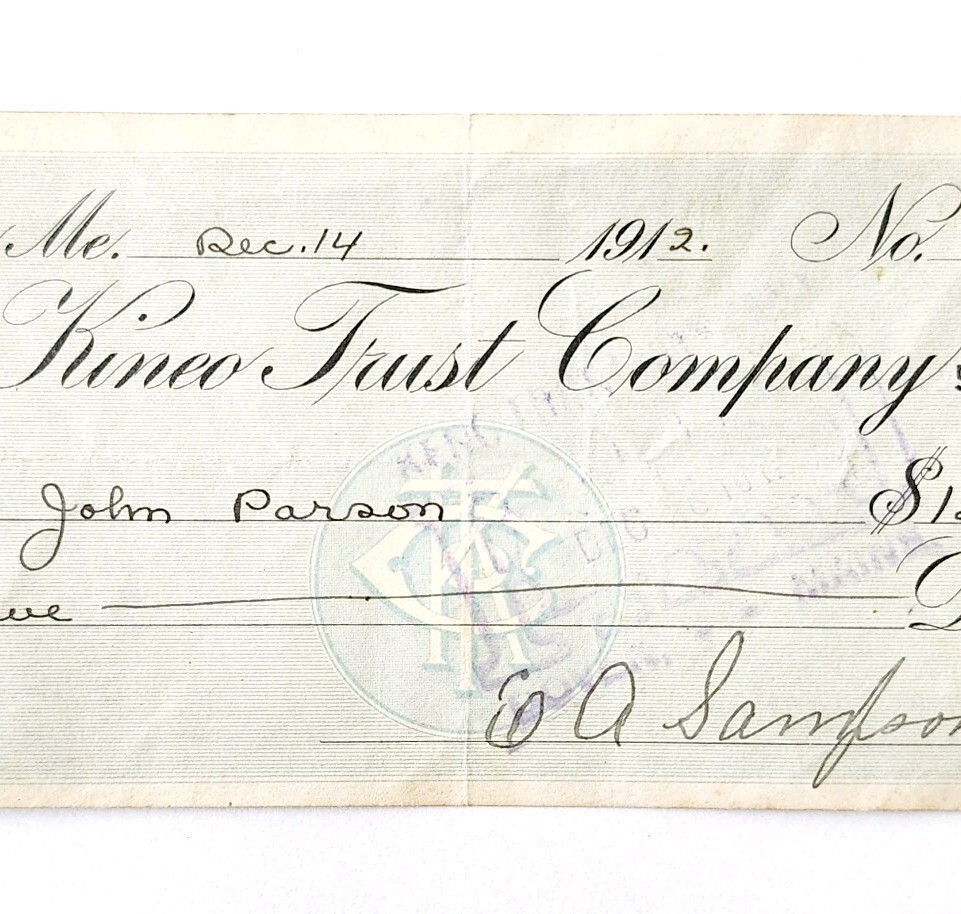 Me. Dec. 14 1912. No.
Kineo Trust Company
John Parson $12
E A Sampson